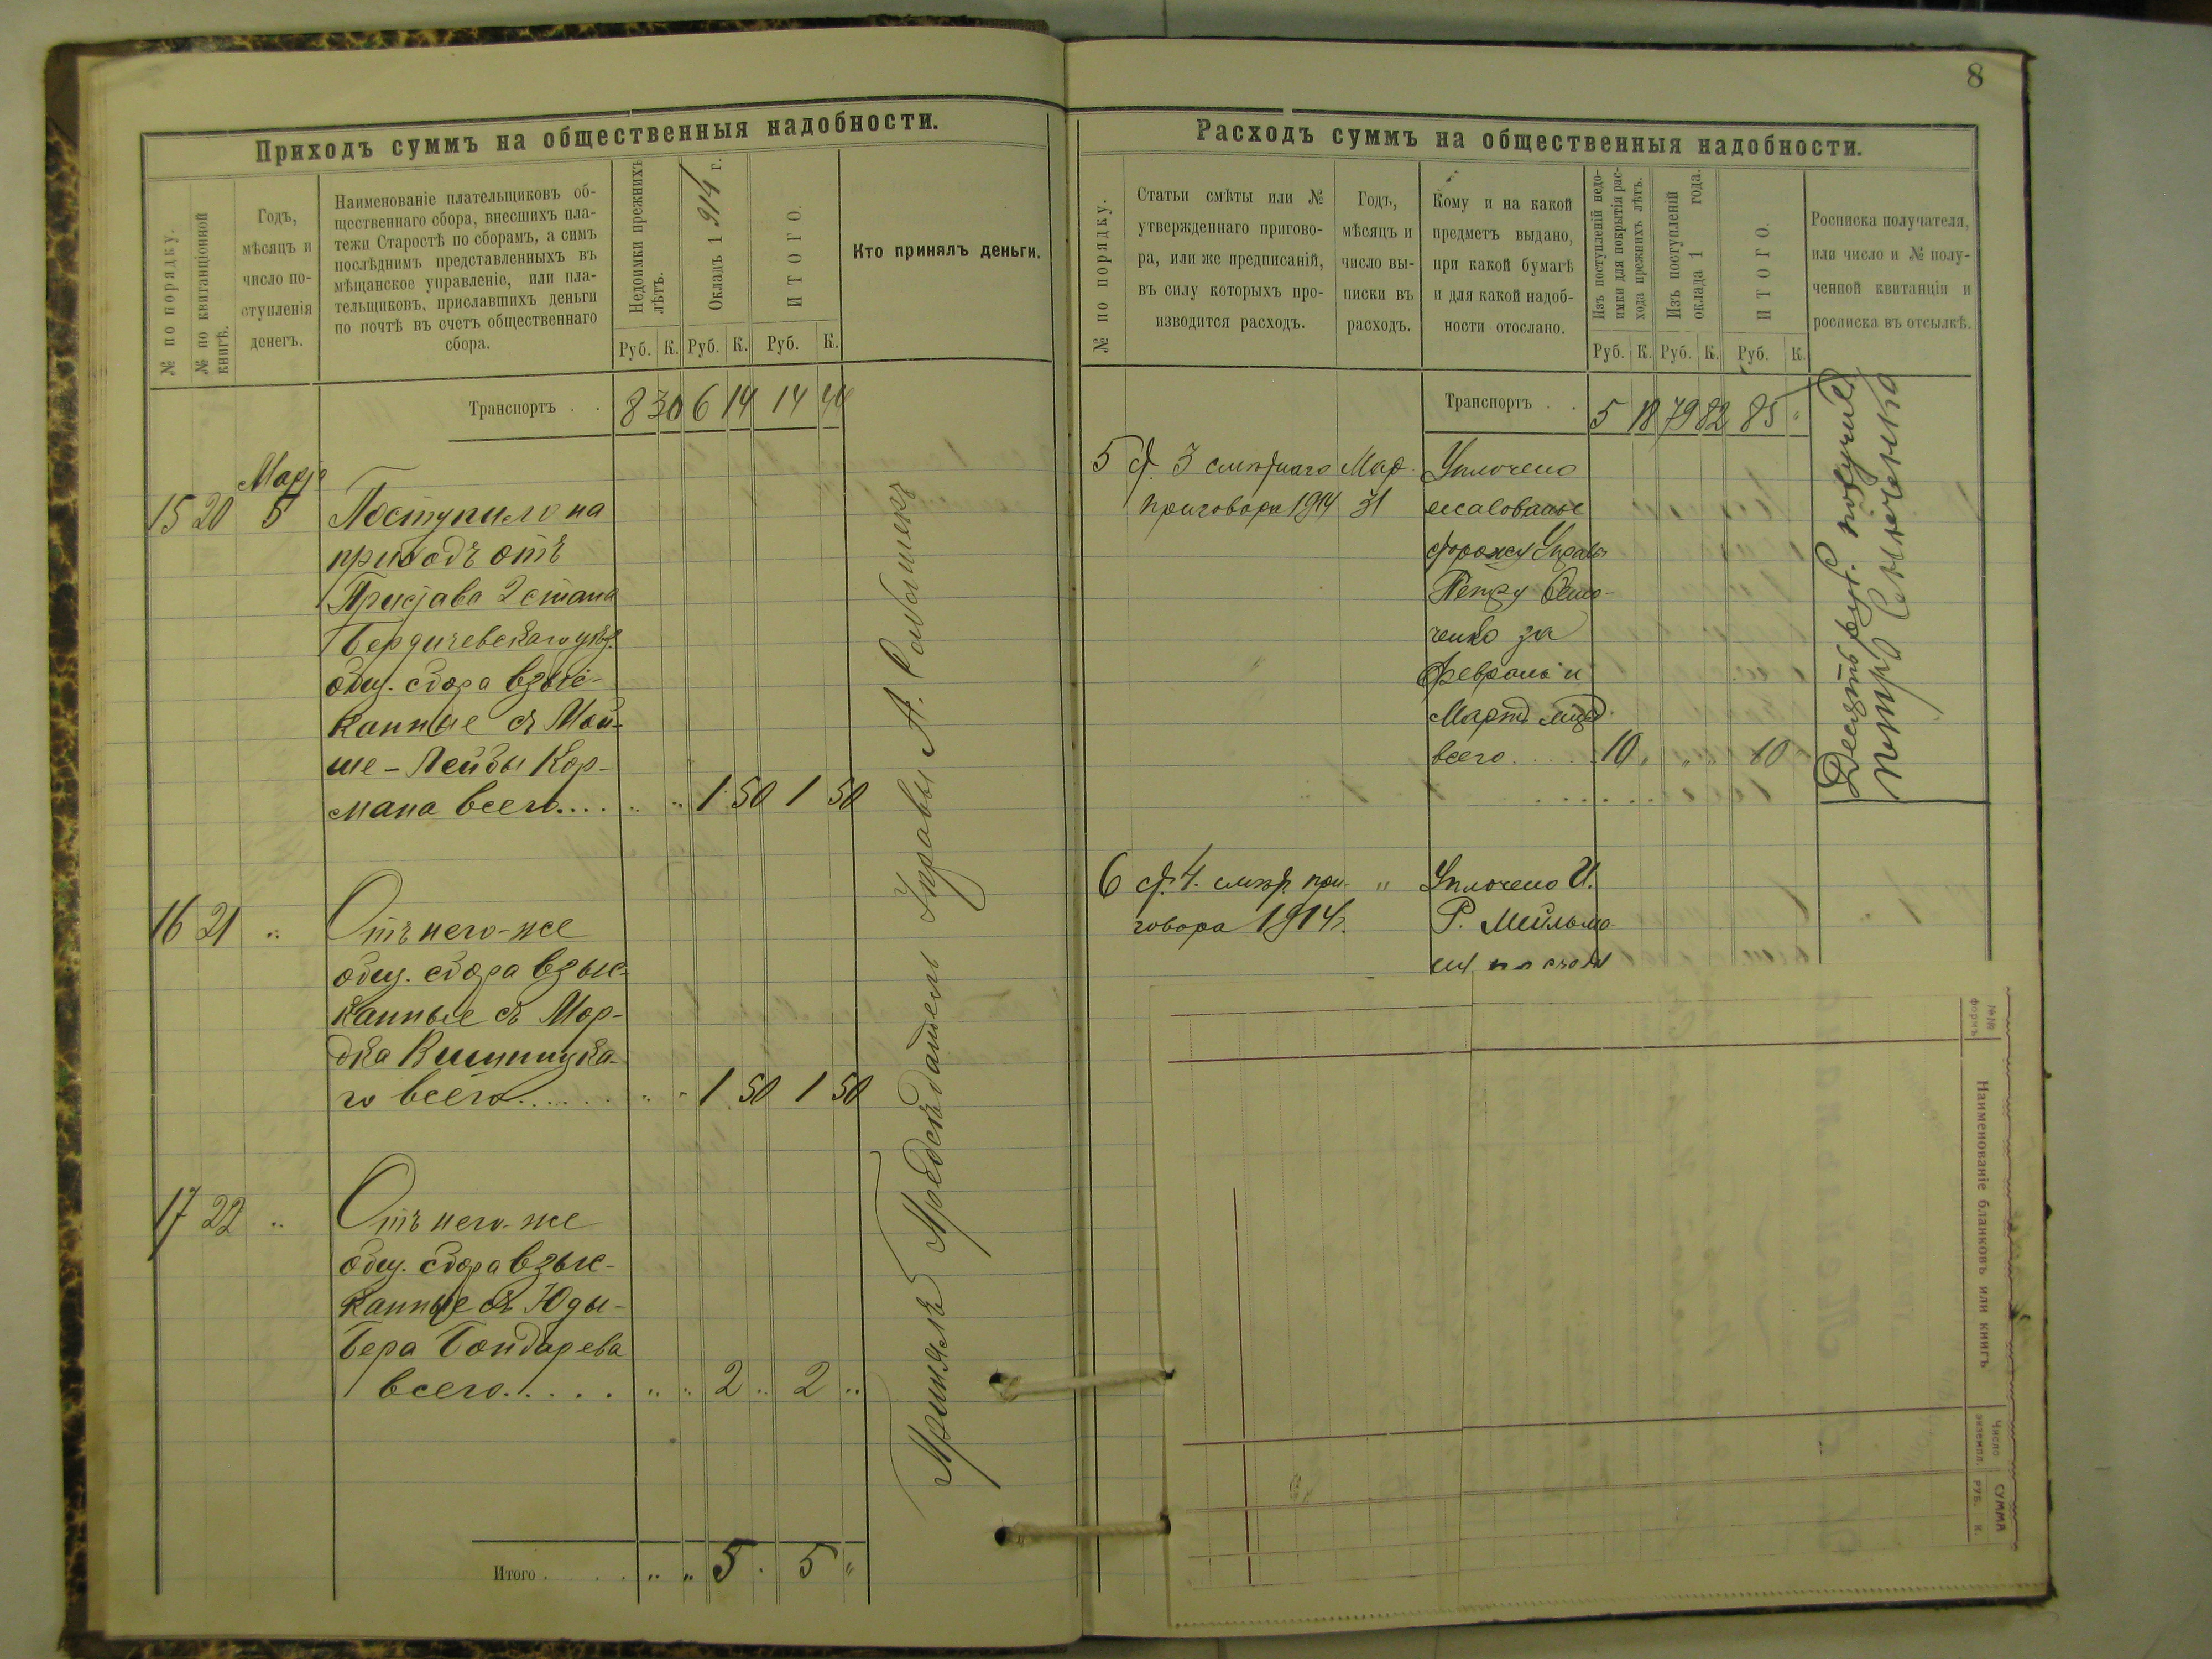 8
Приходъ суммъ на общественныя надобности.
№ по порядку.
№ по квитанціонной
книгѣ.
Годъ,
мѣсяцъ и
число по-
ступленія
денегъ.
Наименованіе плательщиковъ об-
щественнаго сбора, внесшихъ пла-
тежи Старостѣ по сборамъ, а симъ
послѣднимъ представленныхъ въ
мѣщанское управленіе, или пла-
тельщиковъ, приславшихъ деньги
по почтѣ въ счетъ общественнаго
сбора.
Недоимки прежнихъ
лѣтъ.
Окладъ 1914 г.
ИТОГО.
Кто принялъ деньги.
Руб. К. Руб. К. Руб. К.
Транспортъ . . 8 30 6 14 14 44
Марта
15 20 5 Поступило на
приходъ отъ
Пристава 2 стана
Бердичевскаго у.
общ. сбора взыс-
канные съ Мой-
ше-Лейбы Кор-
мана всего.... " " 1 50 1 50
16 21 " Отъ него-же
общ. сбора взыс-
канные съ Мор-
дка Винницка-
го всего...... " " 1 50 1 50
17 22 " Отъ него-же
общ. сбора взыс-
канные съ Юды-
Бера Бондарева
всего..... " " 2 " 2 "
Принялъ Предсѣдатель Управы А.
Итого . . . . " " 5 . 5 "
Расходъ суммъ на общественныя надобности.
№ по порядку.
Статьи смѣты или №
утвержденнаго пригово-
ра, или же предписаній,
въ силу которыхъ про-
изводится расходъ.
Годъ,
мѣсяцъ и
число вы-
писки въ
расходъ.
Кому и на какой
предметъ выдано,
при какой бумагѣ
и для какой надоб-
ности отослано.
Изъ поступленій недо-
имки для покрытія рас-
хода прежнихъ лѣтъ.
Изъ поступленій
оклада 1 года.
ИТОГО.
Росписка получателя,
или число и № полу-
ченной квитанціи и
росписка въ отсылкѣ.
Руб. К. Руб. К. Руб. К.
Транспортъ . . 5 18 79 82 85 "
5 ст. 3 смѣтнаго Мар. Уплочено
приговора 1914 31 жалованье
сторожу Управы
Петру Семе-
ченко за
Февраль и
Мартъ мцъ
всего..... 10 " " 10
Десять руб. получилъ
Петръ
6 ст. 4. смѣт. при- " Уплочено И.
говора 1914 г. Р. Мейльма-
ну по счету
№№
формъ
Наименованіе бланковъ или книгъ
Число
экземпл.
СУММА
РУБ. К.